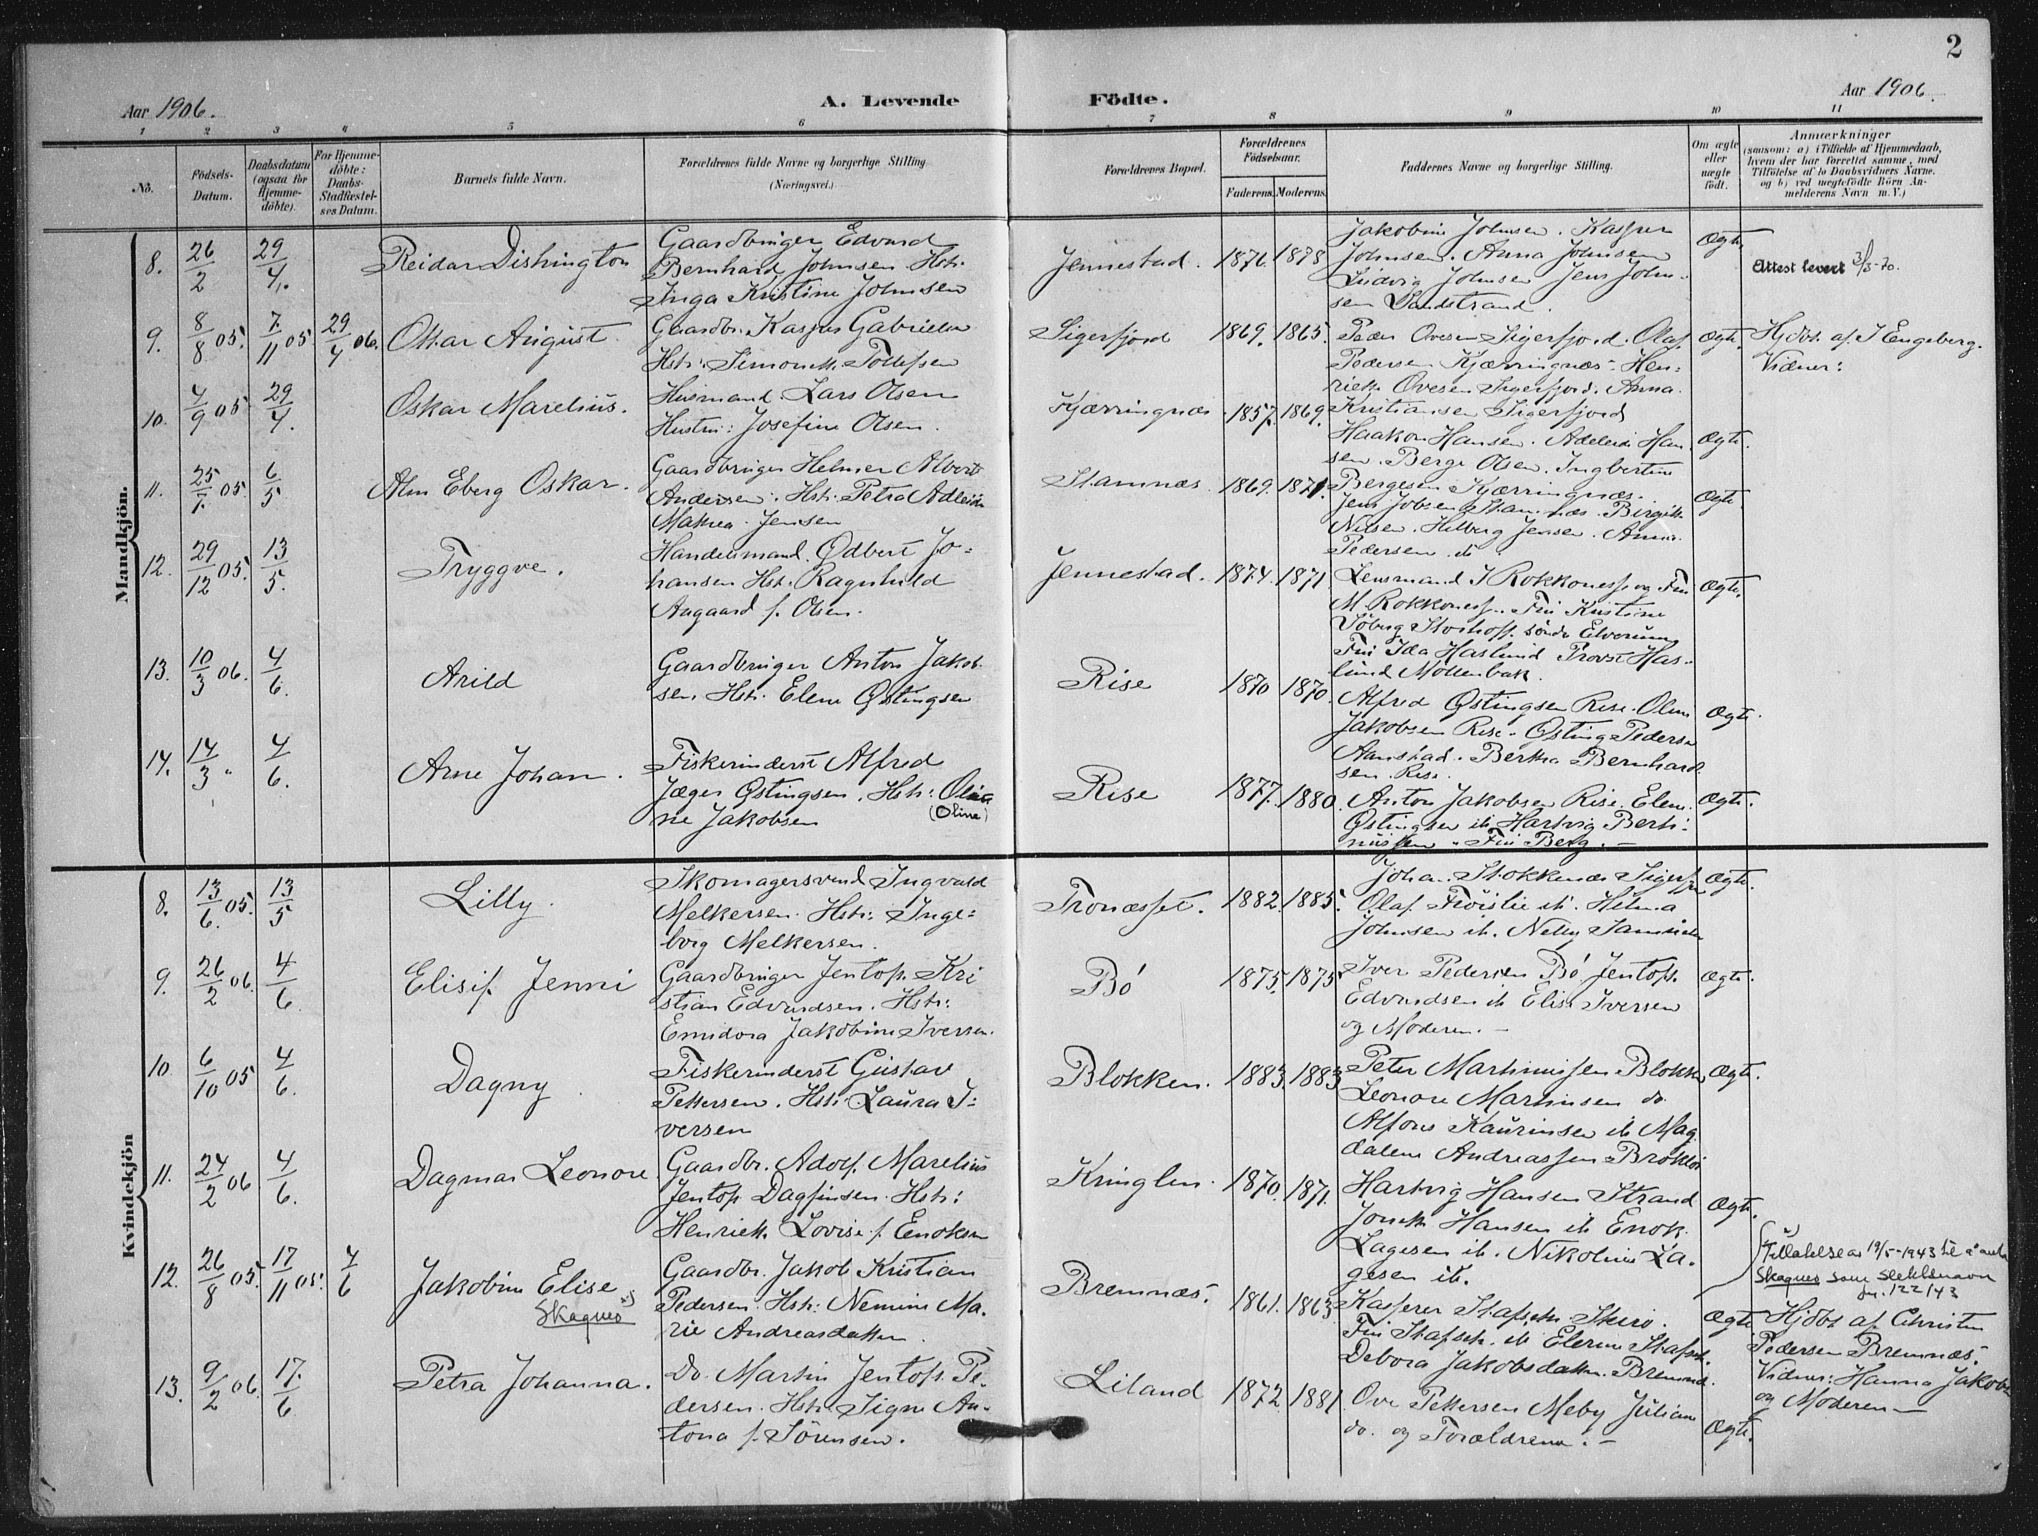 2
Aar 1906.
A. Levende
Födte.
Aar 1906.
1 2 3 4 5 6 7 8 9 10 11
No.
Födsels-Datum.
Daabsdatum (ogsaa for Hjemmedöbte).
For Hjemmedöbte: Daabs-Stadfæstelses Datum.
Barnets fulde Navn.
Forældrenes fulde Navne og borgerlige Stilling (Næringsvei).
Forældrenes Bopæl.
Forældrenes Födselsaar.
Faderens. Moderens.
Faddernes Navne og borgerlige Stilling.
Om ægte eller uægte födt.
Anmærkninger
(saasom: a) i Tilfælde af Hjemmedaab, hvem der har forrettet samme, med Tilföielse af to Daabsvidners Navne, og b) ved uægtefödte Börn Anmelderens Navn m. V.)
Mandkjön.
8. 26/2 29/4. Reidar Dishington
Gaardbruger Edvard
Bernhard Johnsen. Hstr.
Inga Kristine Johnsen
Jennestad. 1876. 1878
Jakobine Johnsen. Kasper
Johnsen. Anna Johnsen
Ludvig Johnsen Jens John-
sen Sandstrand.
Ægte.
Attest levert 3/3-70.
9. 8/8 05. 7/11 05 29/4 06. Oskar August.
Gaardbr. Kaspar Gabrielsen
Hstr: Simonette Tollefsen
Sigerfjord 1869. 1865.
Peder Ovesen Sigerfjord. Olaf
Pedersen Kjærringnes. Hen-
rik Ovesen Sigerfjord. Anna
Kristiansen Sigerfjord
Ægte.
Hjdbt. af J Engeberg.
Vidner:
10. 4/9 05 29/4. Oskar Marelius.
Husmand Lars Olsen
Hustru: Josefine Olsen.
Kjærringnæs 1857. 1869.
Haakon Hansen. Adeleide Han-
sen. Berge Olsen. Ingbertine
Bergesen Kjærringnæs.
Ægte.
11. 25/7. 05 6/5 Alm Eberg Oskar.
Gaardbruger Helmer Albert
Andersen. Hstr. Petra Adleide
Makrea Jensen
Stamnæs. 1869. 1871.
Jens Jobsen Stamnæs. Birgitte
Nilsen. Hilberg Jensen. Anna
Pedersen. ib
Ægte
12. 29/12 05. 13/5. Tryggve.
Handelsmand Ødbert Jo-
hansen Hst. Ragnhild
Aagaard f. Olsen.
Jennestad. 1874. 1871
Lensmand J Rokkones og Fru
M. Rokkones. Fru Kristine
Söberg Storhoff. söndre Elverum
Fru Ida Haslund Provst Has-
lund Mollenbak.
Ægte.
13. 10/3 06. 4/6. Arild
Gaardbruger Anton Jakob-
sen Hstr. Elene Østingsen
Rise 1870 1870
Alfred Østingsen Rise. Oline
Jakobsen Rise. Østing Pedersen
Aanstad. Bertha Bernhard-
sen Rise.
Ægte.
14. 14/3 " 4/6. Arne Johan.
Fiskerinderst Alfred
Jæger Østingsen. Hstr: Oline
(Oline)
ne Jakobsen
Rise 1877. 1880
Anton Jakobsen Rise. Elene
Østingsen ib Hartvig Berti-
nussen. Fru Berg. —
Ægte.
Kvindekjön
8. 13/6. 05. 13/5 Lilly.
Skomagersvend Ingvald
Melkersen. Hstr: Inge-
borg Melkersen.
Tronæsset. 1882. 1885.
Johan Stokkenæs Sigerfj
Olaf Fröislie ib. Hilma
Johnsen ib. Nelly Samuelsen
Ægte.
9. 26/2 06. 4/6. Elisif Jenni
Gaardbruger Jentoft Kri
stian Edvardsen. Hstr:
Emidora Jakobine Iversen.
Bö 1875. 1875
Iver Pedersen Bö Jentoft
Edvardsen ib Elise Iversen
og Moderen. —
Ægte.
10. 6/10 05 4/6. Dagny
Fiskerinderst Gustav
Pettersen. Hstr. Laura I-
versen
Blokken. 1883. 1883
Peter Martinussen Blokken
Leonore Martinsen do.
Alfons Kaurinsen ib Mag
dalene Andreassen
Ægte.
11. 24/2 06 4/6. Dagmar Leonore
Gaardbr. Adolf Marelius
Jentoft Dagfinsen. Hstr:
Henrietta Lovise f. Enoksen
Kringlen. 1870. 1871.
Hartvig Hansen Strand
Jonette Hansen ib Enok
Lagesen ib. Nikoline La-
gesen ib.
Ægte.
12. 26/8 05. 17/11 05. 4/6 Jakobine Elise
Skagnes
Gaardbr. Jakob Kristian
Pedersen. Hstr: Nemine Ma-
rie Andreasdatter.
Bremnæs. 1861. 1863
Kasperer Stafseth Skirö.
Fru Stafseth. ib Elerine Stafseth.
Debora Jakobsdatter. Bremnes.
Ægte
Tillatelse av 19/5-1943 til å anta
Skagnes som slektsnavn
jn. 122/43
Hjdbt af Christen
Pedersen Bremnæs.
Vidner: Hanna Jakobs
og Moderen —
13. 9/2 06. 17/6. Petra Johanna.
Do. Martin Jentoft Pe-
dersen. Hstr. Signe An-
tona f. Sörensen.
Liland 1872. 1881
Ove Pettersen Meby Juliane
do. og Forældrene. —
Ægte.